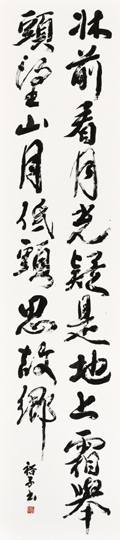 牀前看月光疑是地上霜舉
頭望山月低頭思故鄉